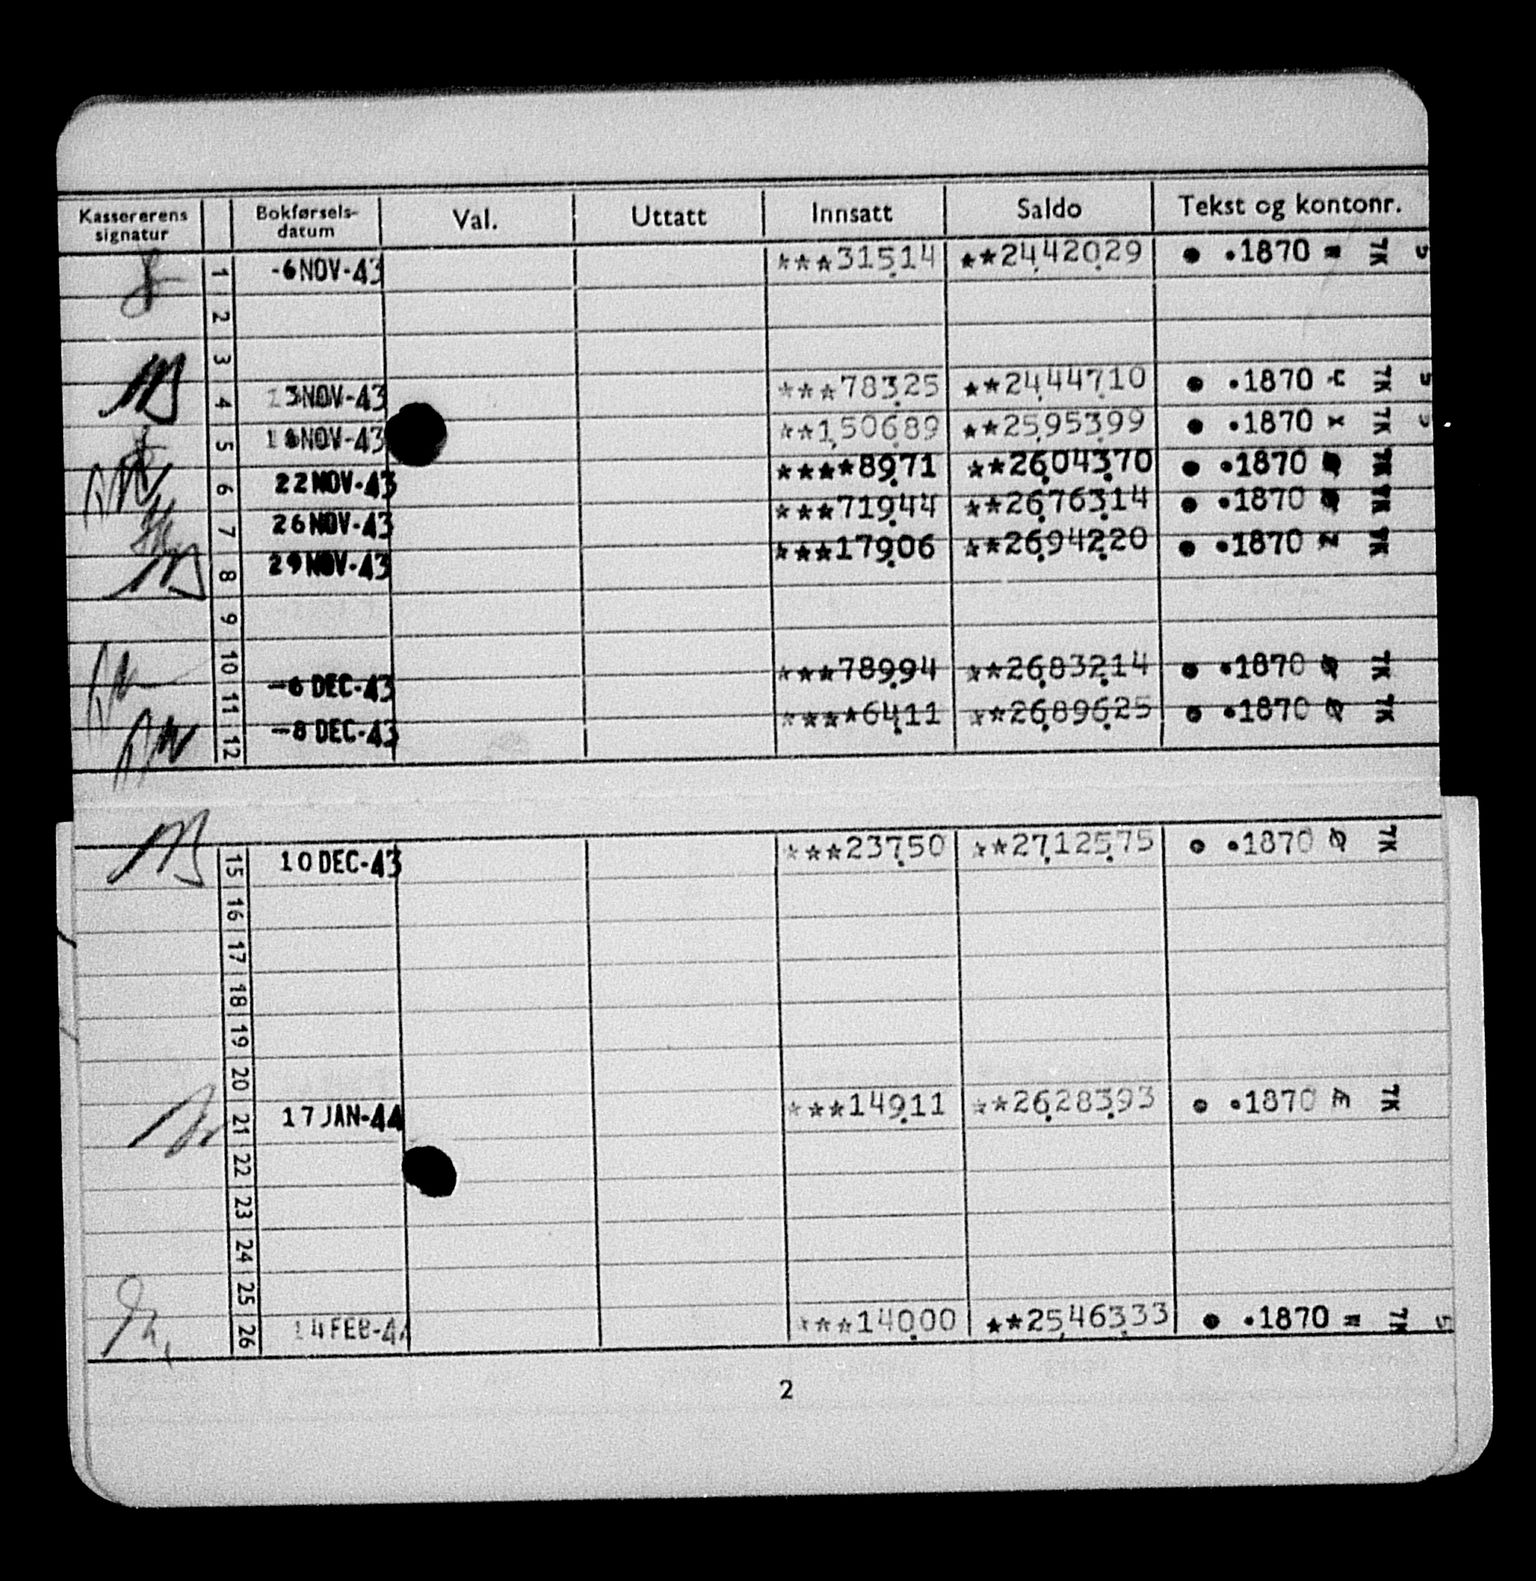 Kassererens signatur Bokførsels- datum Val. Uttatt Innsatt Saldo Tekst og kontonr.
1 -6 NOV-43 ***315,14 **24,420,29 • •1870 TK
2
3
4 13 NOV-43 ***783,25 **24,447,10 • •1870 TK
5 18 NOV-43 **1,506,89 **25,953,99 • •1870 TK
6 22 NOV-43 ****89,71 **26,043,70 • •1870 TK
7 26 NOV-43 ***719,44 **26,763,14 • •1870 TK
8 29 NOV-43 ***179,06 **26,942,20 • •1870 TK
9
10
11 -6 DEC-43 ***789,94 **26,832,14 • •1870 TK
12 -8 DEC-43 ****64,11 **26,896,25 • •1870 TK
15 10 DEC-43 ***237,50 **27,125,75 • •1870 TK
16
17
18
19
20
21 17 JAN-44 ***149,11 **26,283,93 • •1870 TK
22
23
24
25
26 14 FEB-44 ***140,00 **25,463,33 • •1870 TK
2